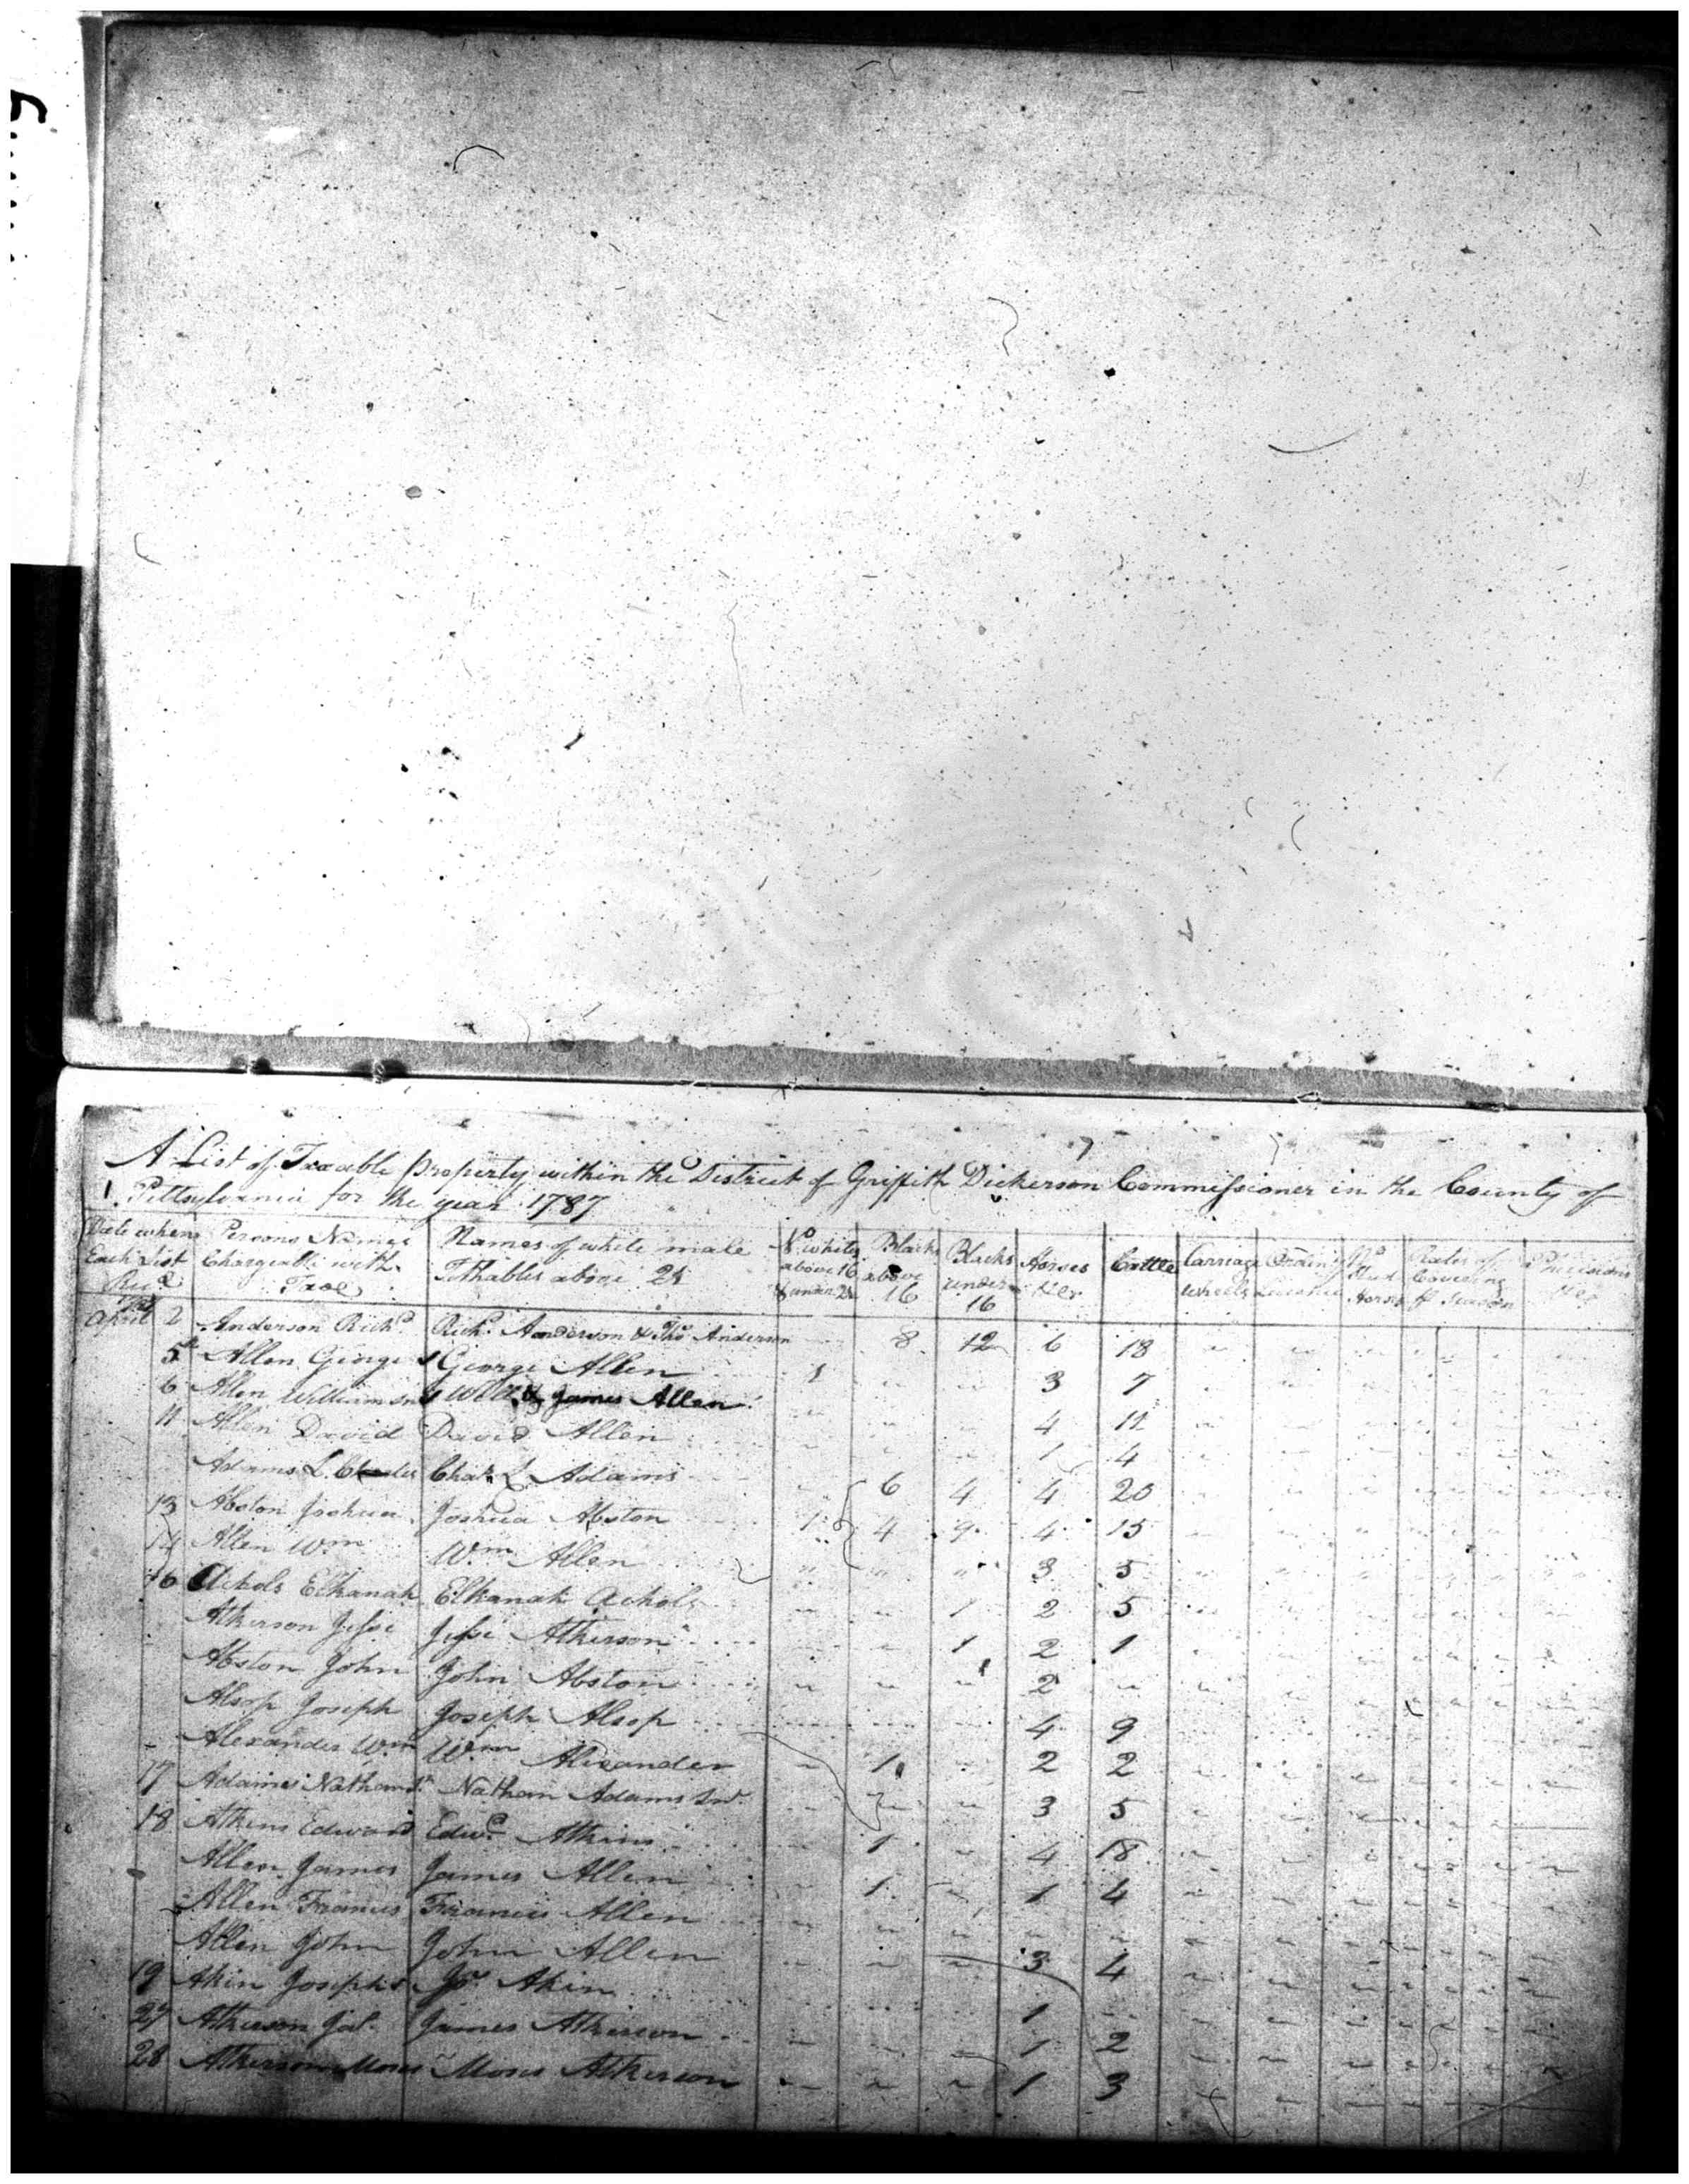 A List of Taxable Property within the District of Griffith Dickerson Commissioner in the County of
Pittsylvania for the year 1787
Date when Each List Recd Persons Names Chargeable with Tax Names of white male Tithables above 21 No whites above 16 & under 21 Blacks above 16 Blacks under 16 Horses &c Cattle Carriage wheels Ordinary Licence No Stud Horses Rates of Covering season
April 2 Anderson Richd Richd Anderson & Thos Anderson 8 12 6 18
5 Allen George George Allen 1 " " 3 7
6 Allen William Will & James Allen " " " 4 11
11 Allen David David Allen " " " 1 4
Adams L. Chas L Adams " 6 4 4 20
13 Abston Joshua Joshua Abston 1 4 9 4 15
14 Allen Wm Wm Allen " " " 3 5
16 Achols Elkanah Elkanah Achols " " 1 2 5
Atkerson Jesse Jesse Atkerson " " 1 2 1
Abston John John Abston " " " 2 "
Alsop Joseph Joseph Alsop 4 9
Alexander Wm Wm Alexander " 1 2 2
17 Adams Nathan Sr Nathan Adams Snr " " " 3 5
18 Atkins Edward Edwd Atkins 1 " 4 18
Allen James James Allen " 1 " 1 4
Allen Francis Francis Allen " " " " "
Allen John John Allen " " " 3 4
19 Akin Joseph Akin 1 "
27 Atkerson Jas James Atkerson " " " 1 2
28 Atkerson Moses Moses Atkerson " " " 1 3